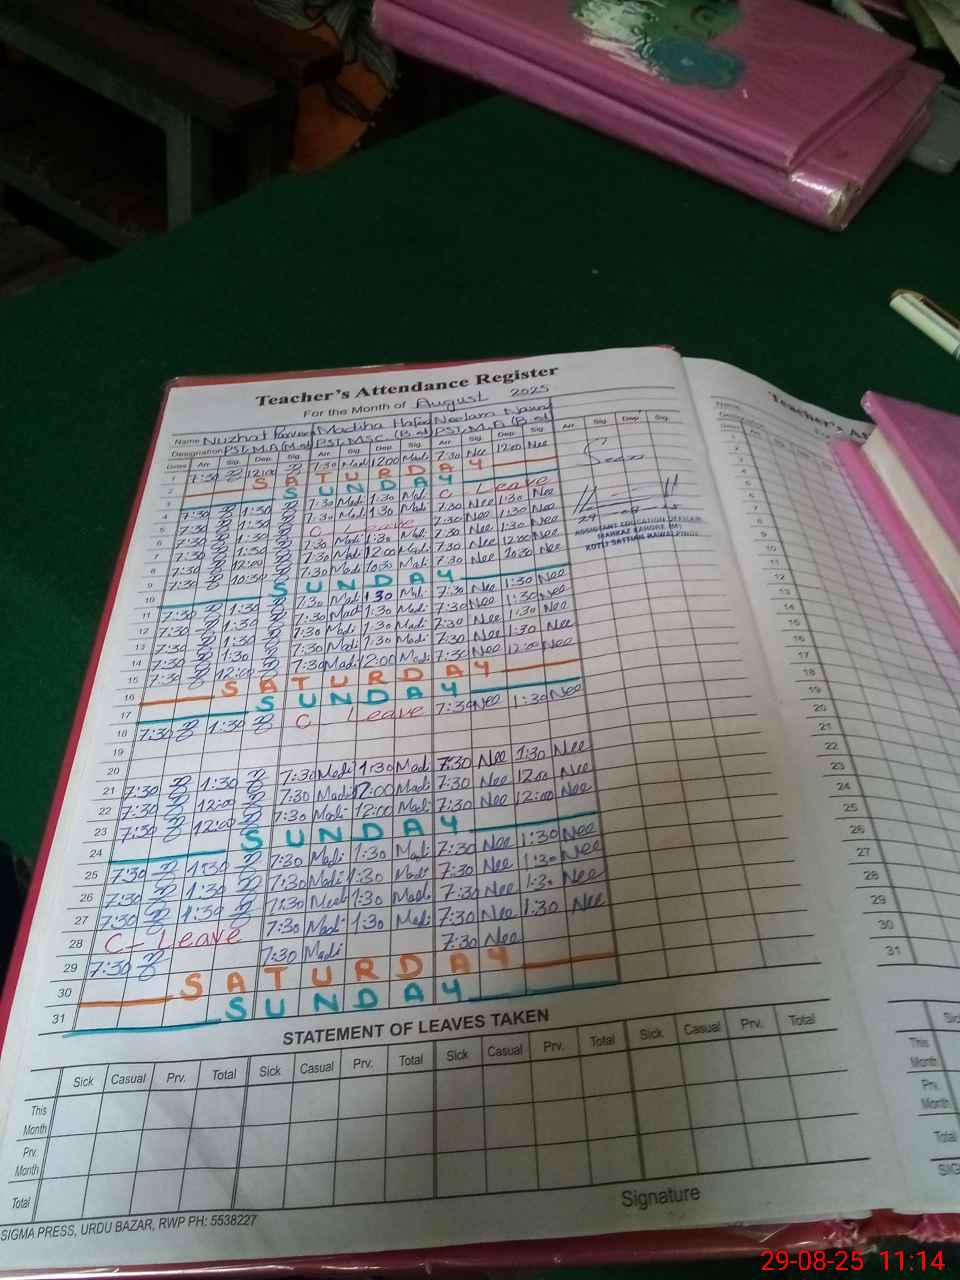 Teacher's Attendance Register
For the Month of August 2025
Name Nuzhat Parveen Madiha Neelam
Designation PST. M.A PST. Msc. (B.ed) PST. M.A (B.ed)
Dates Arr. Sig. Dep. Sig. Arr. Sig. Dep. Sig. Arr. Sig. Dep. Sig. Arr. Sig. Dep. Sig.
1 7:30 12:00 7:30 Madi 12:00 Madi 7:30 Nee 12:00 Nee
2 SATURDAY
3 SUNDAY
4 7:30 1:30 7:30 Madi 1:30 Madi C Leave
5 7:30 1:30 7:30 Madi 1:30 Madi 7:30 Nee 1:30 Nee
6 7:30 1:30 C Leave 7:30 Nee 1:30 Nee
7 7:30 1:30 7:30 Madi 1:30 Madi 7:30 Nee 1:30 Nee
8 7:30 12:00 7:30 Madi 12:00 Madi 7:30 Nee 12:00 Nee
9 7:30 10:30 7:30 Madi 10:30 Madi 7:30 Nee 10:30 Nee
10 SUNDAY
11 7:30 1:30 7:30 Madi 1:30 Madi 7:30 Nee 1:30 Nee
12 7:30 1:30 7:30 Madi 1:30 Madi 7:30 Nee 1:30 Nee
13 7:30 1:30 7:30 Madi 1:30 Madi 7:30 Nee 1:30 Nee
14 7:30 1:30 7:30 Madi 1:30 Madi 7:30 Nee 1:30 Nee
15 7:30 12:00 7:30 Madi 12:00 Madi 7:30 Nee 12:00 Nee
16 SATURDAY
17 SUNDAY
18 7:30 1:30 C Leave 7:30 Nee 1:30 Nee
19
20
21 7:30 1:30 7:30 Madi 1:30 Madi 7:30 Nee 1:30 Nee
22 7:30 12:00 7:30 Madi 12:00 Madi 7:30 Nee 12:00 Nee
23 7:30 12:00 7:30 Madi 12:00 Madi 7:30 Nee 12:00 Nee
24 SUNDAY
25 7:30 1:30 7:30 Madi 1:30 Madi 7:30 Nee 1:30 Nee
26 7:30 1:30 7:30 Madi 1:30 Madi 7:30 Nee 1:30 Nee
27 7:30 1:30 7:30 Madi 1:30 Madi 7:30 Nee 1:30 Nee
28 C- Leave 7:30 Madi 1:30 Madi 7:30 Nee 1:30 Nee
29 7:30 7:30 Madi 7:30 Nee
30 SATURDAY
31 SUNDAY
ASSISTANT EDUCATION OFFICER
MARKAZ (M)
KOTLI SATTIAN RAWALPINDI
STATEMENT OF LEAVES TAKEN
Sick Casual Prv. Total Sick Casual Prv. Total Sick Casual Prv. Total Sick Casual Prv. Total
This Month
Prv. Month
Total
Signature
SIGMA PRESS, URDU BAZAR, RWP PH: 5538227
Teacher's
Name
Dates Arr.
1
2
3
4
5
6
7
8
9
10
11
12
13
14
15
16
17
18
19
20
21
22
23
24
25
26
27
28
29
30
31
This Month
Prv. Month
Total
29-08-25 11:14